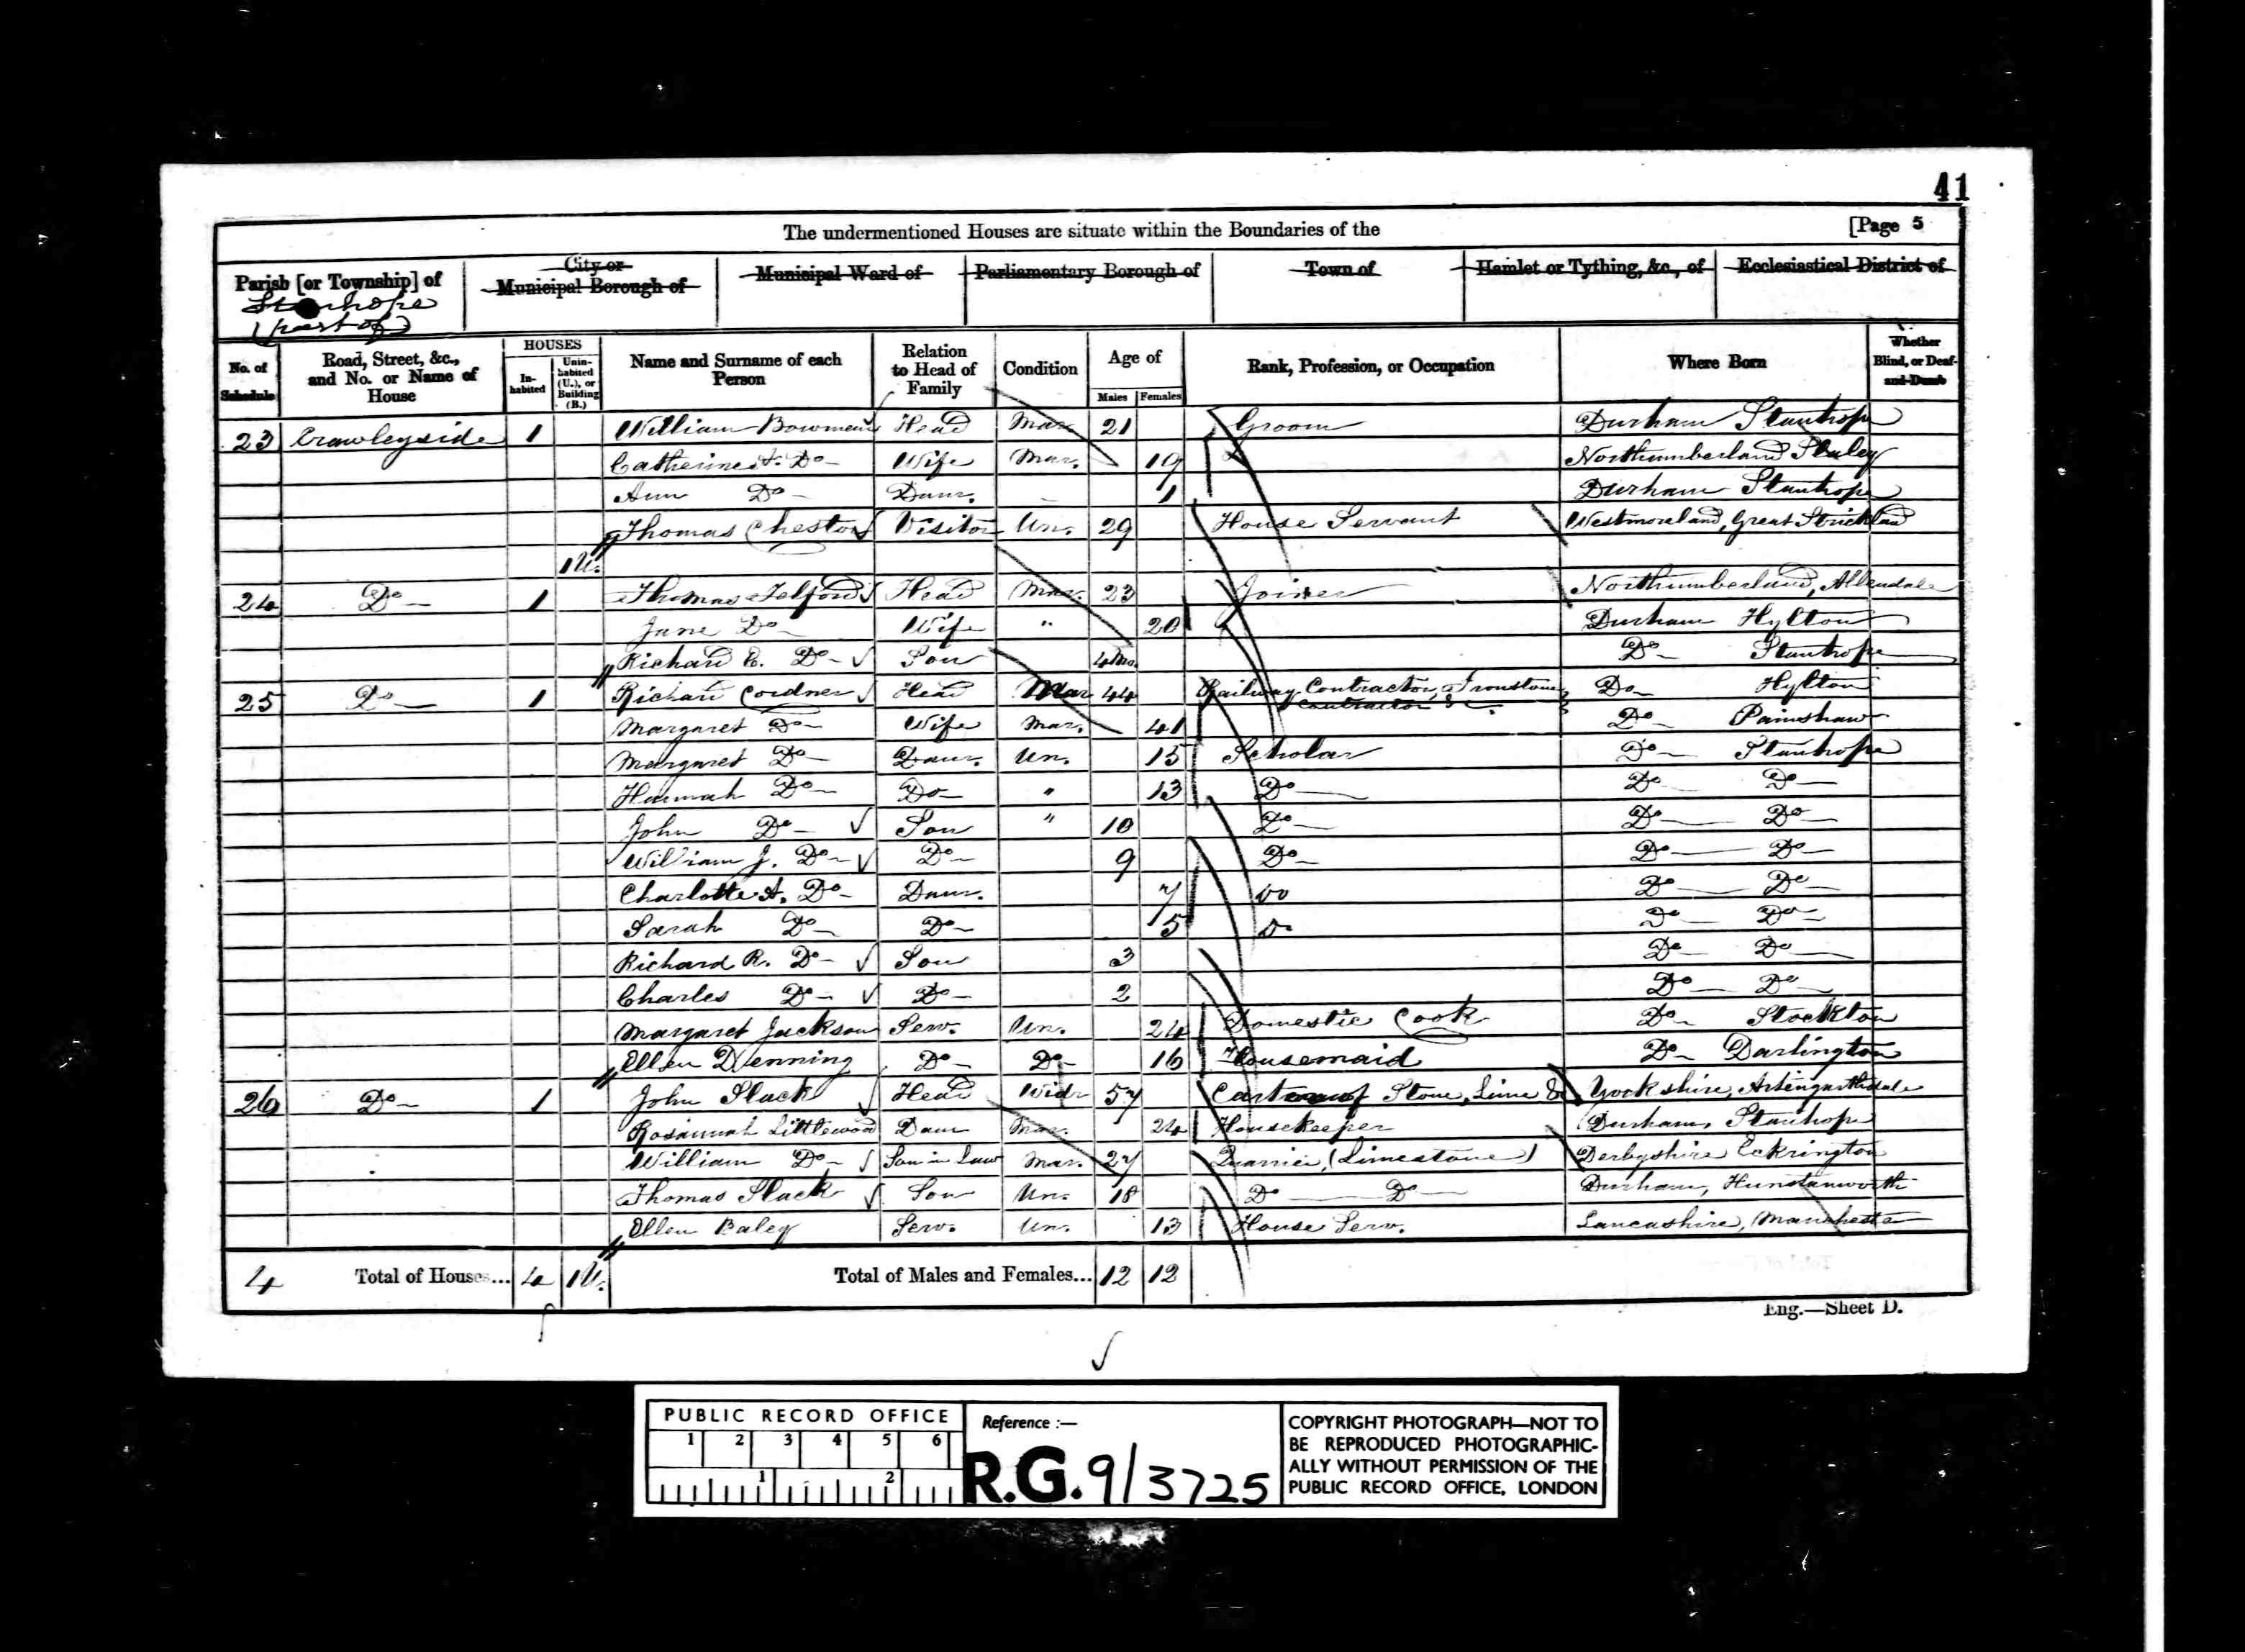 41
The undermentioned Houses are situate within the Boundaries of the [Page 5
Parish [or Township] of City or Municipal Borough of Municipal Ward of Parliamentary Borough of Town of Hamlet or Tything, &c., of Ecclesiastical District of
Stanhope
(part of)
No. of Schedule Road, Street, &c., and No. or Name of House HOUSES Inhabited Uninhabited (U.), or Building (B.) Name and Surname of each Person Relation to Head of Family Condition Age of Males Females Rank, Profession, or Occupation Where Born Whether Blind, or Deaf-and-Dumb
23 Crawleyside 1 William Bowman Head Mar 21 Groom Durham Stanhope
Catherine A. Do Wife Mar. 19 Northumberland Slaley
Ann Do Daur. 1 Durham Stanhope
Thomas Chester Visitor Un. 29 House Servant Westmoreland, Great Strickland
1U.
24 Do 1 Thomas Telford Head Mar. 23 Joiner Northumberland, Allendale
Jane Do Wife " 20 Durham Hylton
Richard E. Do Son 4Mo. Do Stanhope
25 Do 1 Richard Cordner Head Mar 44 Railway Contractor, Ironstone Contractor &c. Do Hylton
Margaret Do Wife Mar. 41 Do Painshaw
Margaret Do Daur. Un. 15 Scholar Do Stanhope
Hannah Do Do " 13 Do Do Do
John Do Son " 10 Do Do Do
William J. Do Do 9 Do Do Do
Charlotte A. Do Daur. 7 Do Do Do
Sarah Do Do 5 Do Do Do
Richard R. Do Son 3 Do Do
Charles Do Do 2 Do Do
Margaret Jackson Serv. Un. 24 Domestic Cook Do Stockton
Ellen Denning Do Do 16 Housemaid Do Darlington
26 Do 1 John Slack Head Widr 57 Carter of Stone, Lime & Yorkshire, Arkengarthdale
Rosannah Littlewood Daur Mar. 24 Housekeeper Durham, Stanhope
William Do Son in Law Mar. 27 Quarrier, (Limestone) Derbyshire Eckrington
Thomas Slack Son Un. 18 Do Do Durham, Hunstanworth
Ellen Baley Serv. Un. 13 House Serv. Lancashire, Manchester
4 Total of Houses... 4 1U. Total of Males and Females... 12 12
Eng.—Sheet D.
PUBLIC RECORD OFFICE
1 2 3 4 5 6
1 2
Reference :—
R.G. 9/3725
COPYRIGHT PHOTOGRAPH—NOT TO
BE REPRODUCED PHOTOGRAPHIC-
ALLY WITHOUT PERMISSION OF THE
PUBLIC RECORD OFFICE, LONDON